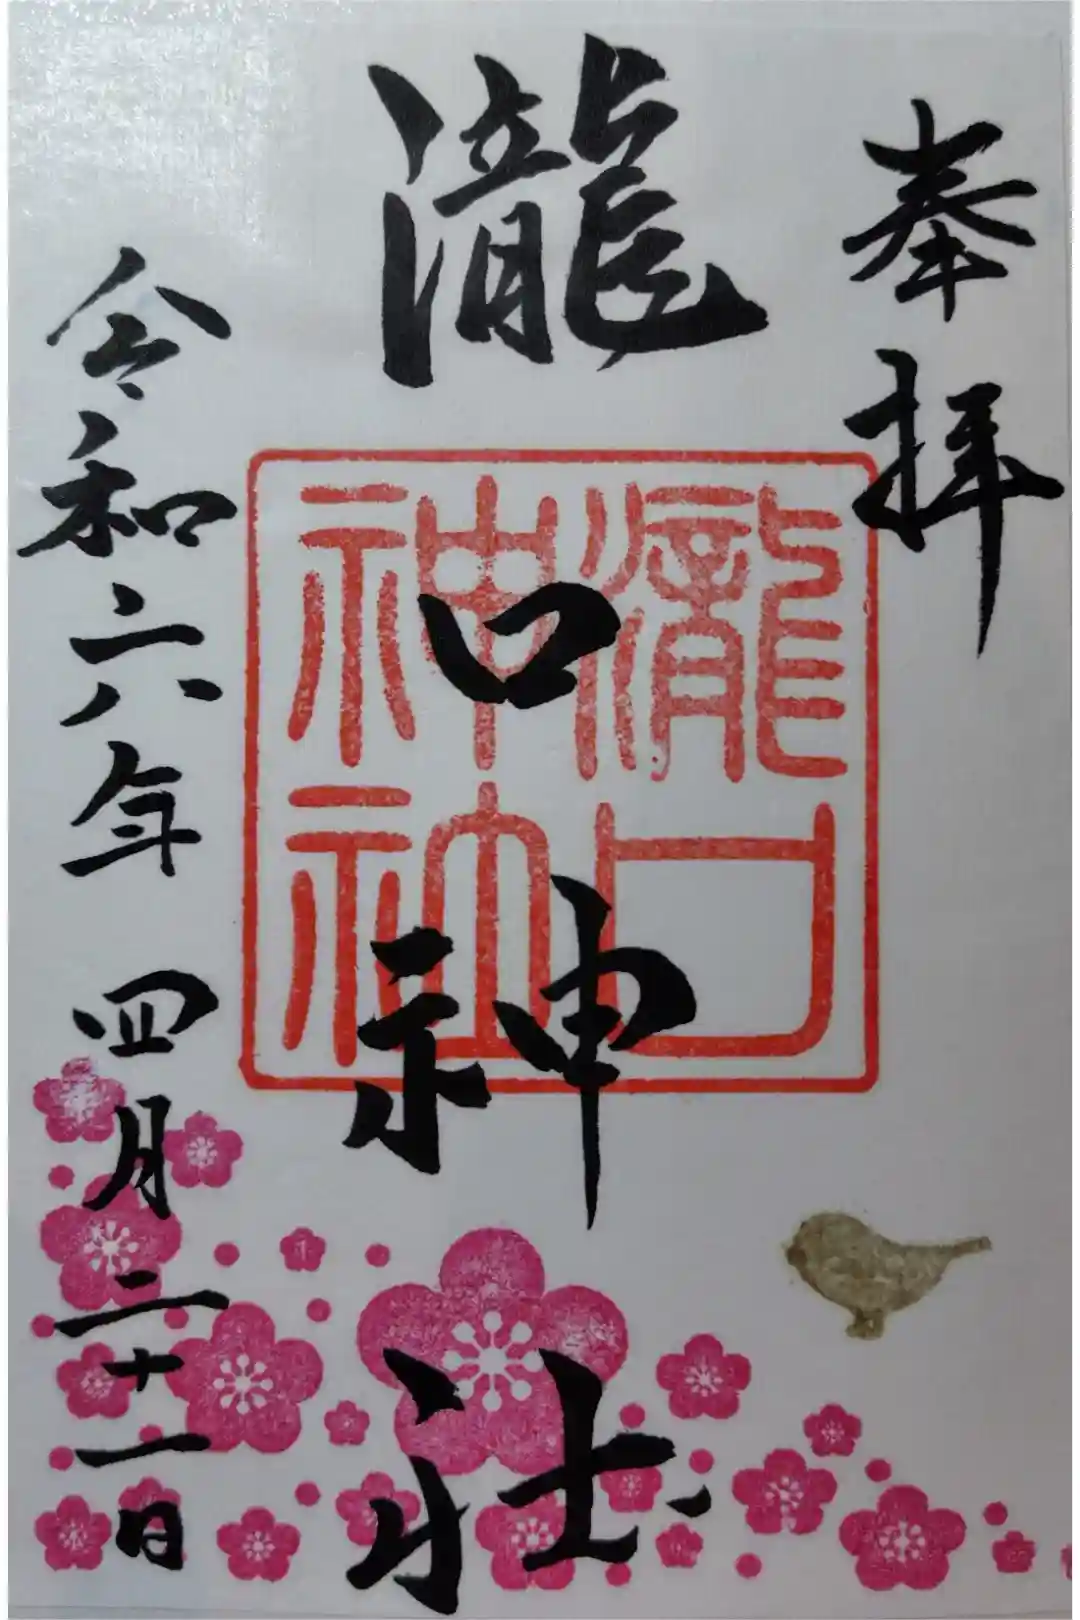 奉拝
瀧口神社
瀧口
神社
令和六年 四月二十一日